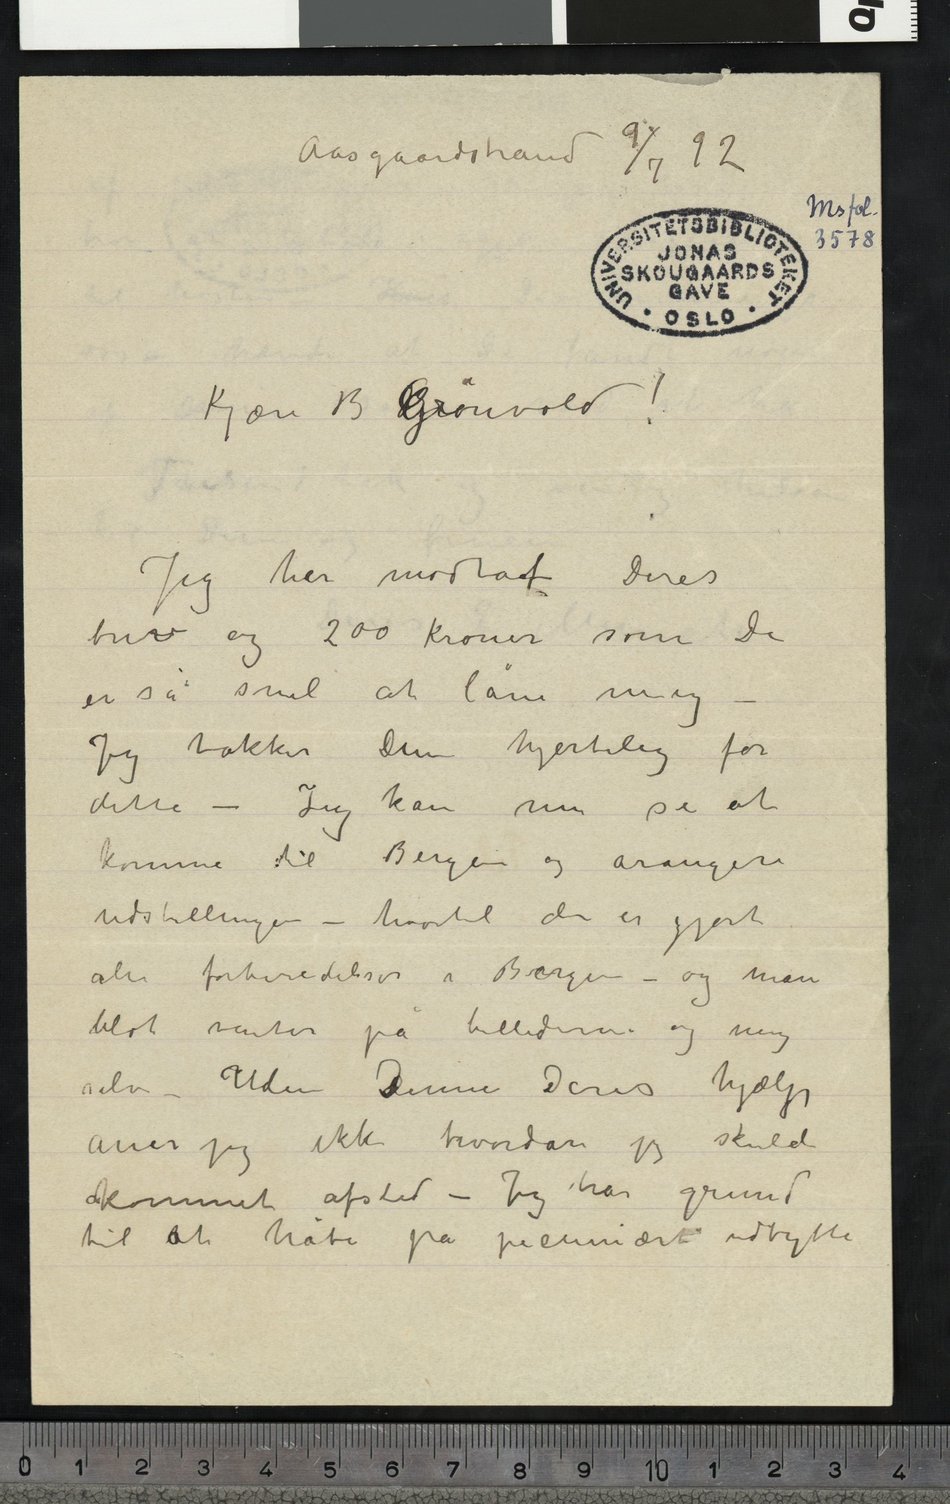 Aasgaardstrand 9/7 92
Ms fol.
3578
UNIVERSITETSBIBLIOTEKET
JONAS
SKOUGAARDS
GAVE
OSLO
Kjære B Grönvold!
Jeg har modtaet Deres
brev og 200 kroner som De
er så snil at låne meig –
Jeg takker Dem hjertelig for
dette – Jeg kan nu se at
komme til Bergen og arangere
udstillingen – hvortil der er gjort
alle forberedelser i Bergen – og man
blot venter på billederne og meg
selv – Uden Denne Deres hjælp
aner jeg ikke hvordan jeg skulde
kommet afsted – Jeg har grund
til at håbe på pecuniært udbytte
0 1 2 3 4 5 6 7 8 9 10 1 2 3 4